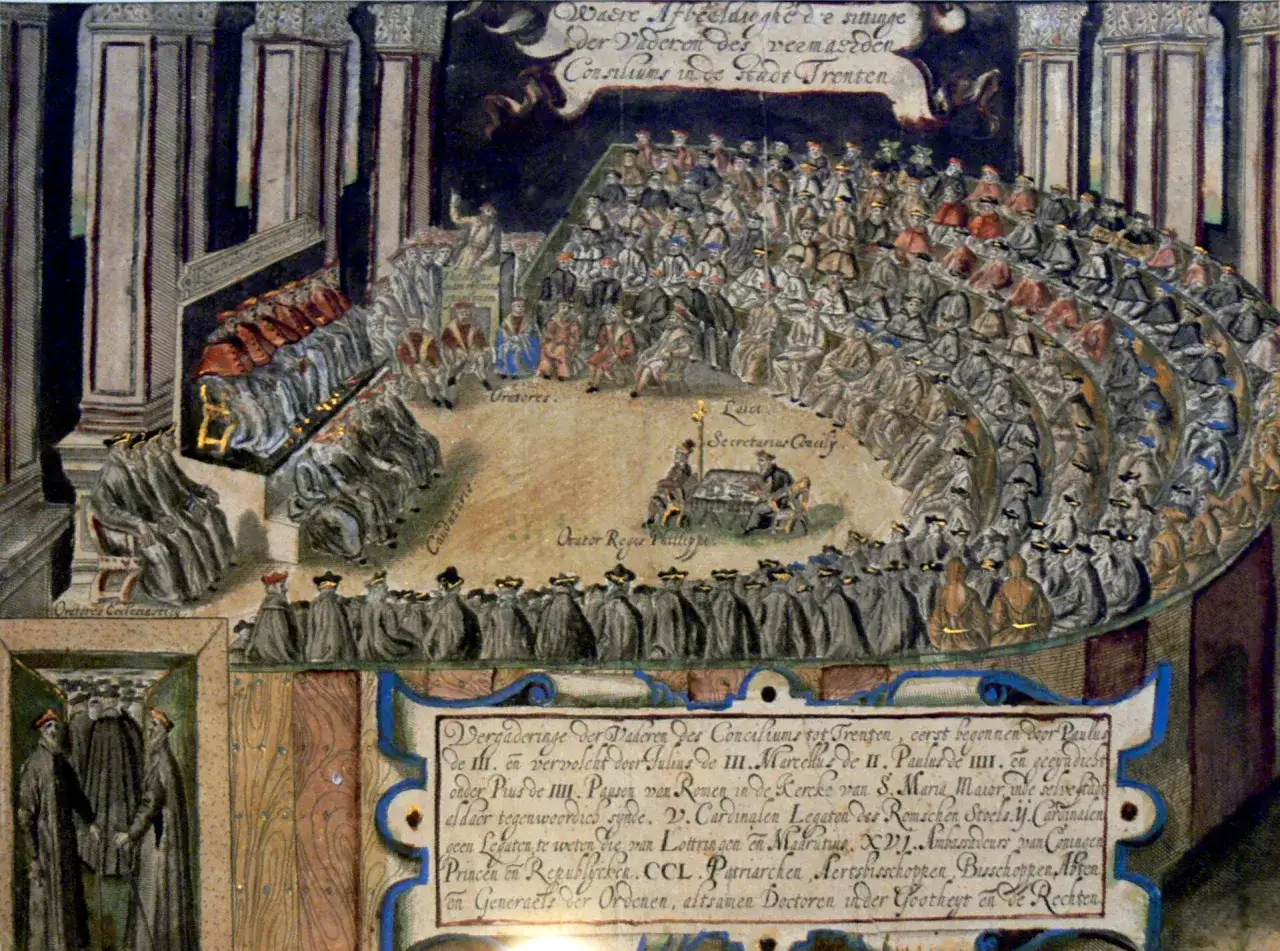 Waere Afbeeldighe de sittinge
der Vaderen des vermaerden
Consiliums in de Stadt Trenten
Oratores.
Laici
Secretarius Concilij
Orator Regis Phillippi.
Oratores Ecclesiastici
Vergaderinge der Vaderen des Conciliums tot Trenten, eerst begonnen door Paulus
de III. en vervolcht door Julius de III. Marcellus de II. Paulus de IIII. en geeyndicht
onder Pius de IIII. Pausen van Romen in de Kercke van S. Maria Maior, inde selve stadt
aldaer tegenwoordich synde. V. Cardinalen Legaten des Romschen Stoels. ij. Cardinalen
geen Legaten, te weten die van Lottringen en Madrutius. XVI. Ambassadeurs van Coningen
Princen en Republijcken. CCL. Patriarchen, Aertsbisschoppen, Bisschoppen, Abten
en Generaels der Ordenen, altsamen Doctoren in der Gootheyt en de Rechten